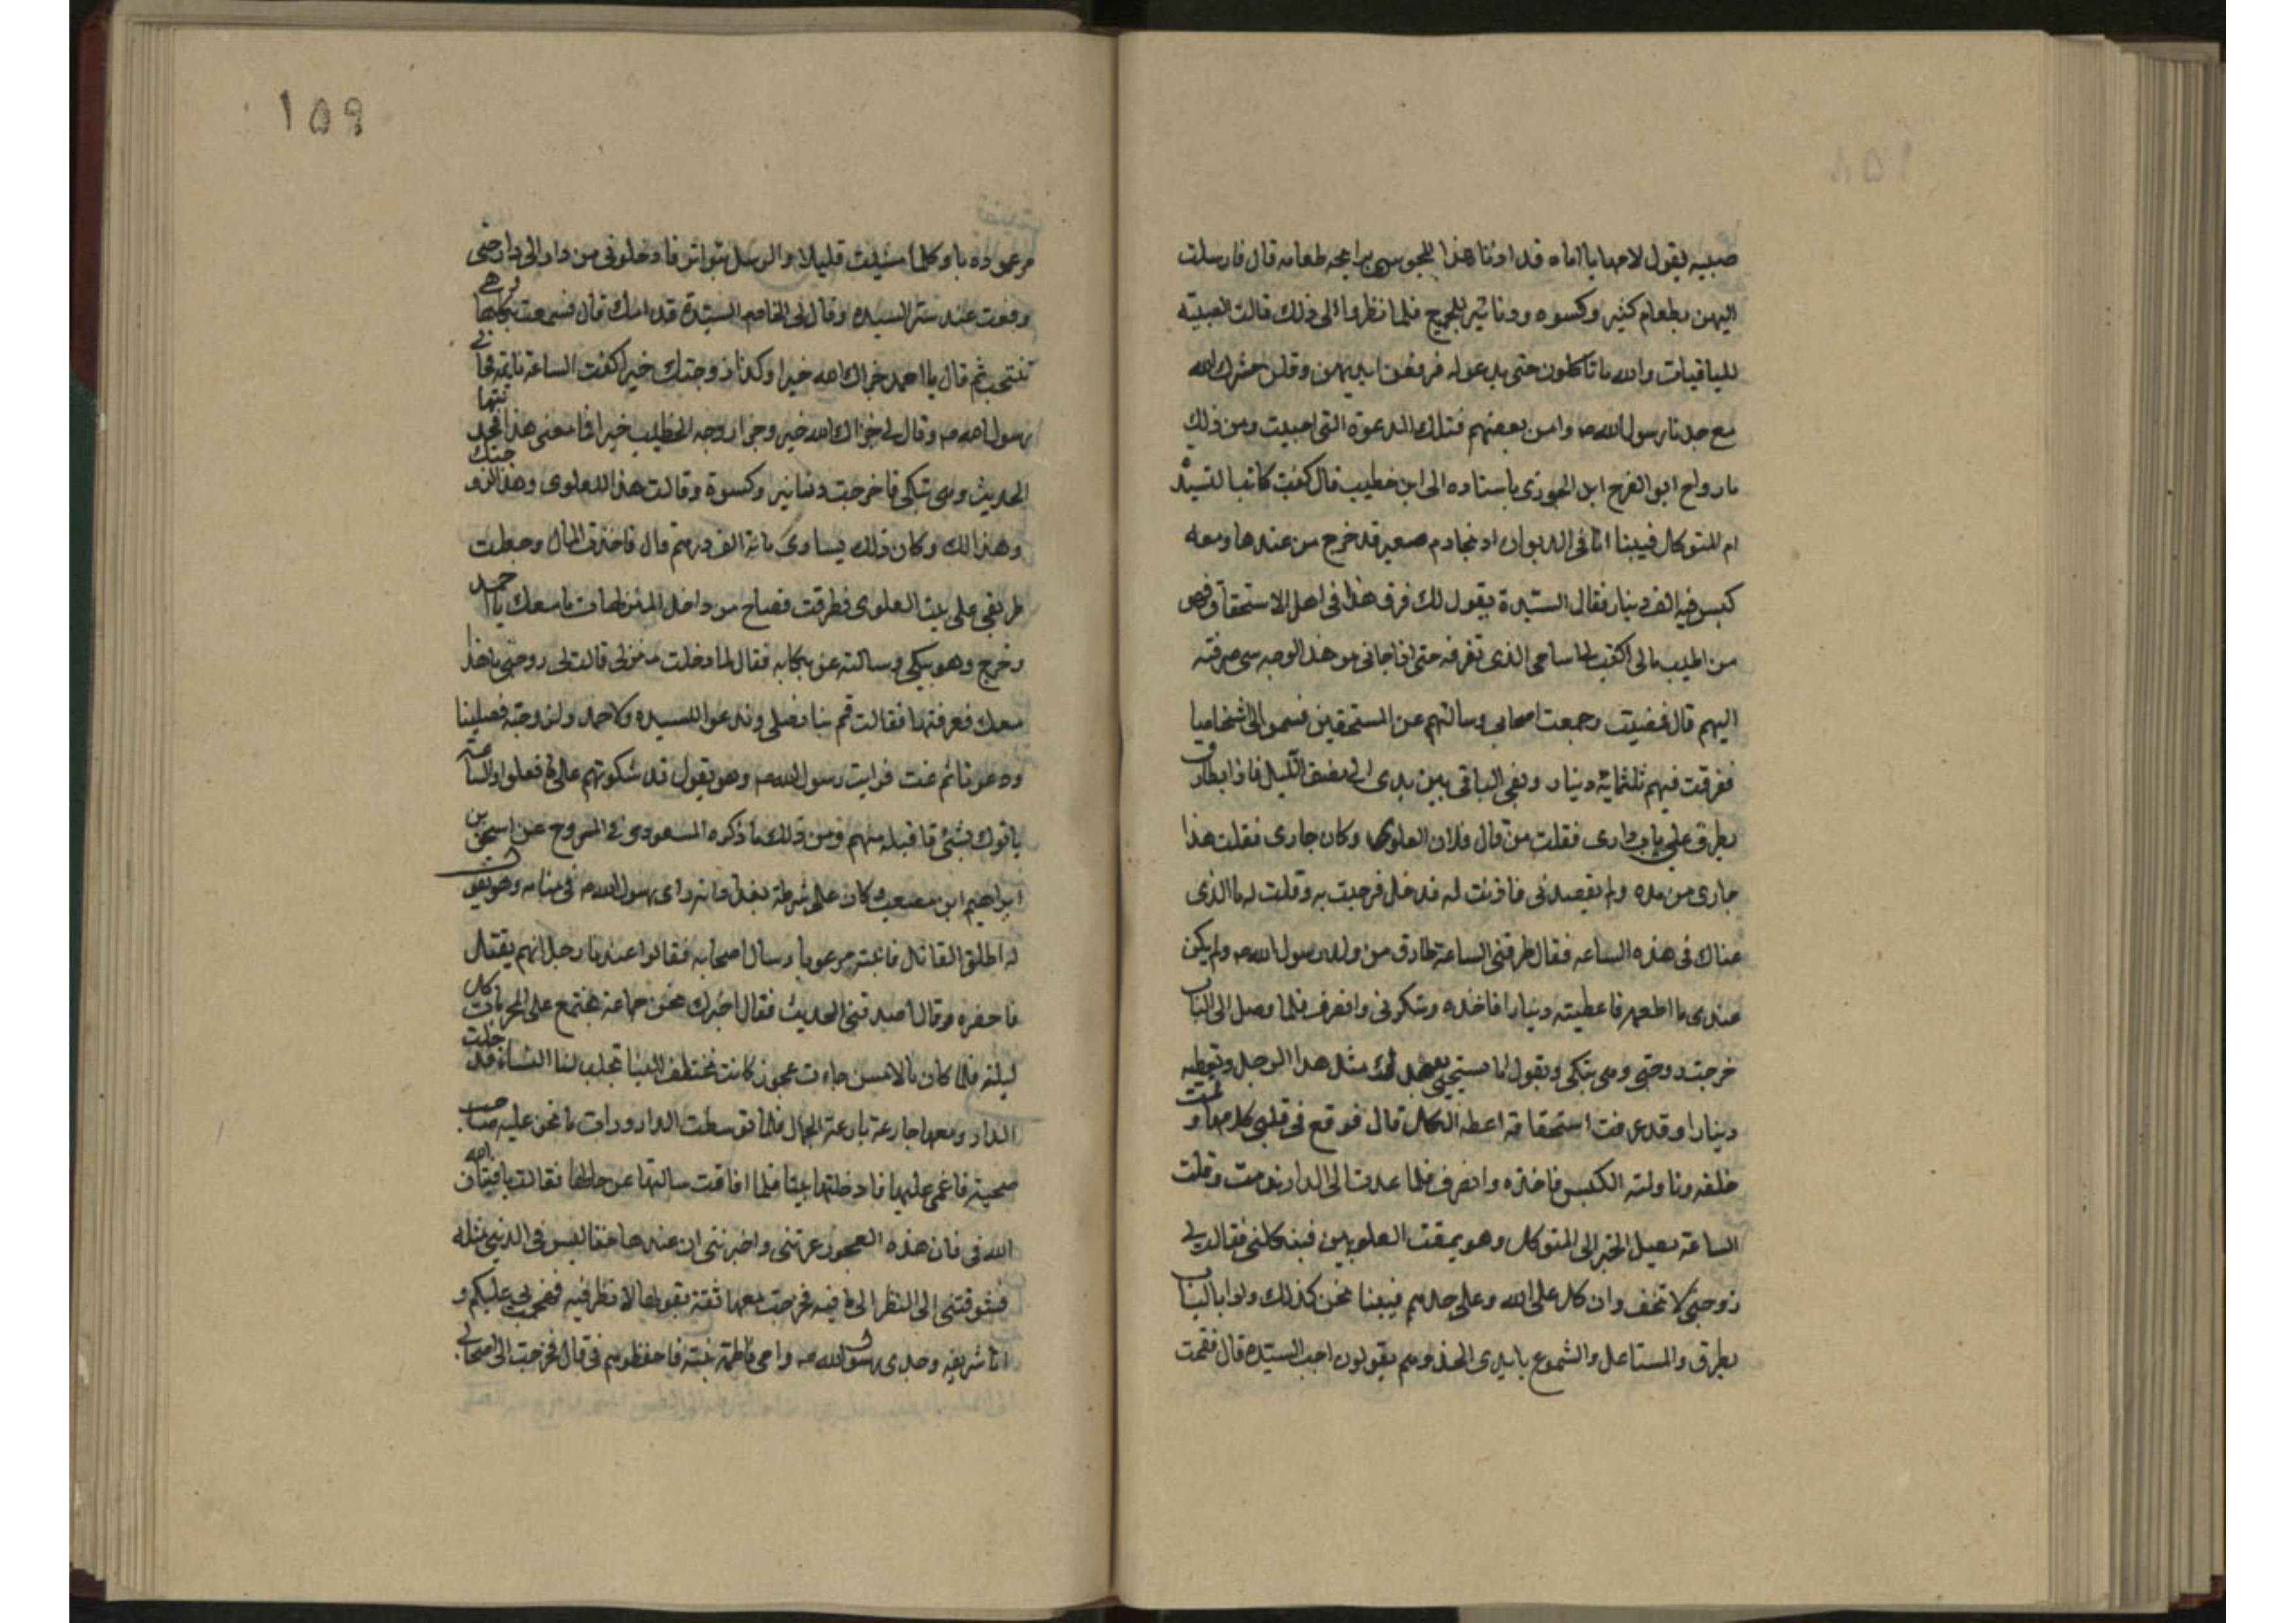 صبيه يقول لامها يا اماه قد اذانا هذا المجوسي برايحه طعامه قال فارسلت
اليهن بطعام كثير وكسوه ودنانير للجميع فلما نظروا الى ذلك قالت الصبيه
للباقيات والله ما تاكلون حتى ندعو له فرفعن ايديهن وقلن حشرك الله
مع جدنا رسول الله صـ وامن بعضهم فتلك الدعوة التي اجيبت ومن ذلك
ما رواه ابو الفرج ابن الجوزي باسناده الى ابن خطيب قال كنت كاتبا للسيدة
ام المتوكل فبينا انا في الديوان اذ بخادم صغير قد خرج من عندها ومعه
كيس فيه الف دينار فقال السيدة يقول لك فرق هذا في اهل الاستحقاق فهو
من اطيب مالي اكتب لنا اسامي الذي تفرقه حتى اذا جاني من هذا الوجه شي صرفته
اليهم قال فمضيت وجمعت اصحابي وسالتهم عن المستحقين فسموا الى اشخاصا
ففرقت فيهم ثلثمائة دينار وبقي الباقي بين يدي الى نصف الليل فاذا بطارق
يطرق علي باب داري فقلت من قال فلان العلوي وكان جاري فقلت هذا
جاري من مده ولم يقصدني فاذنت له فدخل فرحبت به وقلت له ما الذي
عناك في هذه الساعه فقال طرقني الساعة طارق من ولد رسول الله صـ ولم يكن
عندي ما اطعمه فاعطيته دينارا فاخذه وشكرني وانصرف فلما وصل الى الباب
خرجت زوجتي وهي تبكي وتقول اما تستحيي يقصدك مثل هذا الرجل وتعطيه
دينارا وقد عرفت استحقاقه اعطه الكل قال فوقع في قلبي كلامها وقمت
خلفه وناولته الكيس فاخذه وانصرف فلما عدت الى الدار ندمت وقلت
الساعة يصل الخبر الى المتوكل وهو يمقت العلويين فينكلني فقالت لي
زوجتي لا تخف واتكل على الله وعلى جدهم فبينا نحن كذلك واذا بالباب
يطرق والمشاعل والشموع بايدي الخدم وهم يقولون اجب السيده قال فقمت
١٥٩
مرعوبا وكلما مشيت قليلا والرسل تتواتر فادخلوني من دار الى دار حتى
وقفت عند ستر السيده وقال لي الخادم السيدة قدامك قال فسمعت بكاها وهي
تنتحب ثم قال يا احمد جزاك الله خيرا وكذا زوجتك خيرا كنت الساعة نايمه فجائني
رسول الله صـ وقال لي جزاك الله خير وجزا زوجه الخطيب خيرا فما معنى هذا فحدثتها
الحديث وهي تبكي فاخرجت دنانير وكسوة وقالت هذا للعلوي وهذا لزوجتك
وهذا لك وكان ذلك يساوي مائة الف درهم قال فاخذت المال وجعلت
طريقي على بيت العلوي فطرقت فصاح من داخل المنزل هات ما معك يا احمد
وخرج وهو يبكي وسالته عن بكايه فقال لما دخلت منزلي قالت لي زوجتي ما هذا
معك فعرفتها فقالت قم بنا نصلي وندعو للسيده ولاحمد ولزوجته فصلينا
ودعونا ثم نمت فرايت رسول الله صـ وهو يقول قد شكرتهم على ما فعلوا والساعة
ياتوك بشئ فاقبله منهم ومن ذلك ما ذكره المسعودي في المروج عن اسحق بن
ابراهيم ابن مصعب وكان على شرطة بغداد انه راى رسول الله صـ في منامه وهو يقول
له اطلق القاتل فانتبه مرعوبا وسال اصحابه فقالوا عندنا رجل اتهم بقتل
فاحضره وقال اصدقني الحديث فقال اخبرك نحن جماعة نجتمع على المحرمات كل
ليلة فلما كان بالامس جاءت عجوز كانت تختلف الينا تجلب لنا النساء فدخلت
الدار ومعها جارية بارعة الجمال فلما توسطت الدار ورات ما نحن عليه صاحت
صيحة فاغمي عليها فادخلتها بيتا فلما افاقت سالتها عن حالها فقالت يا فتيان الله
الله في فان هذه العجوز غرتني واخبرتني ان عندها حقا ليس في الدنيا مثله
فشوقتني الى النظر الى ما فيه فخرجت معها ثقة بقولها لا نظر فيه فهجمت بي عليكم و
انا شريفه وجدي رسول الله صـ وامي فاطمة بنته فاحفظوهم في قال فخرجت الى اصحابي